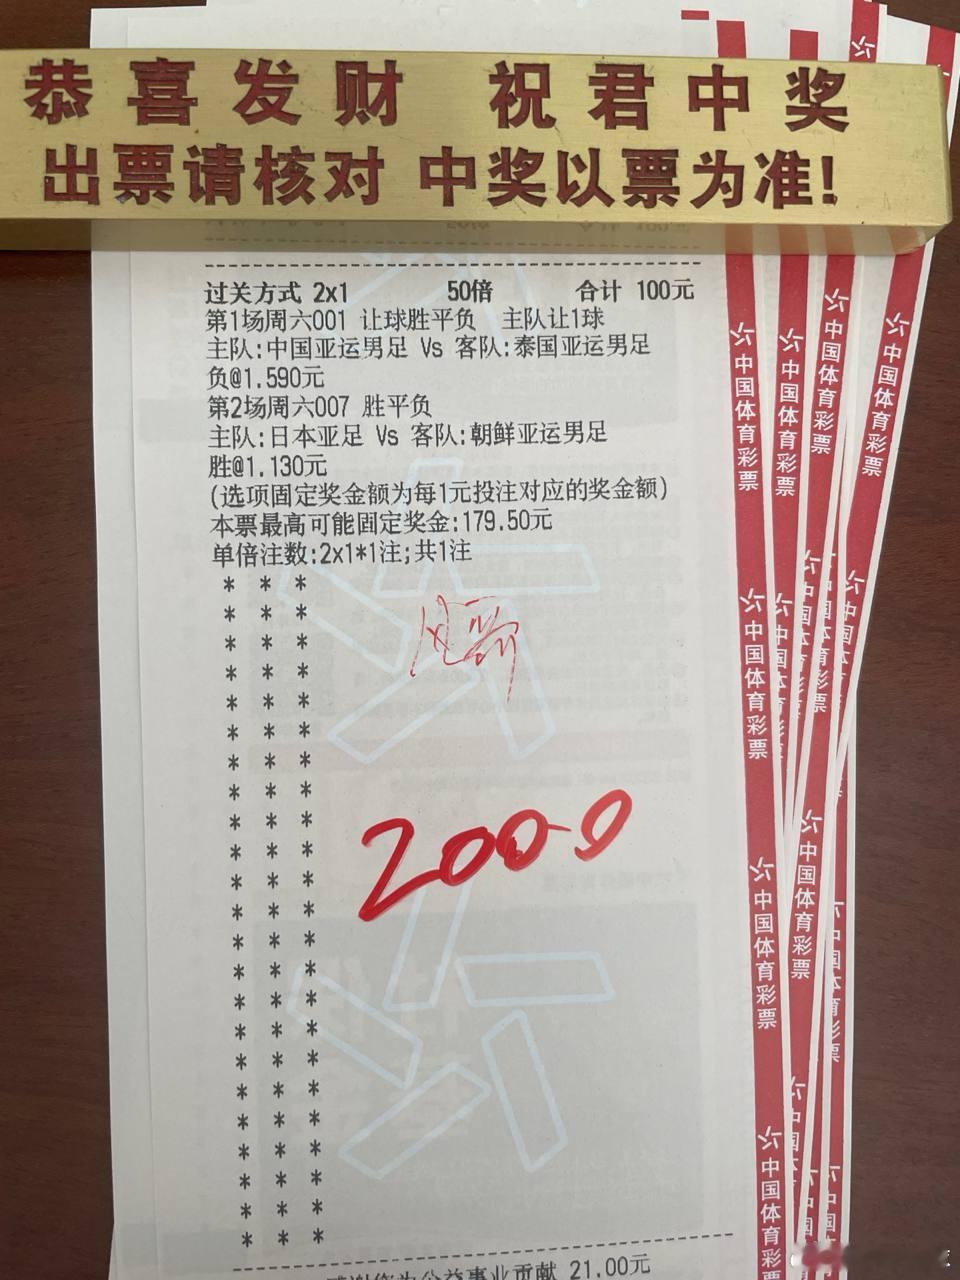 恭喜发财 祝君中奖
出票请核对 中奖以票为准!
过关方式 2x1 50倍 合计 100元
第1场周六001 让球胜平负 主队让1球
主队:中国亚运男足 Vs 客队:泰国亚运男足
负@1.590元
第2场周六007 胜平负
主队:日本亚足 Vs 客队:朝鲜亚运男足
胜@1.130元
(选项固定奖金额为每1元投注对应的奖金额)
本票最高可能固定奖金:179.50元
单倍注数:2x1*1注;共1注
* * *
* * *
* * *
* * *
* * *
* * *
* * *
* * *
* * *
* * *
* * *
* * *
* * *
* * *
* * *
* * *
* * *
* * *
* * *
* * *
* * *
* * *
* * *
2000
感谢您为公益事业贡献 21.00元
中国体育彩票
中国体育彩票
中国体育彩票
中国体育彩票
中国体育彩票
中国体育彩票
中国体育彩票
中国体育彩票
中国体育彩票